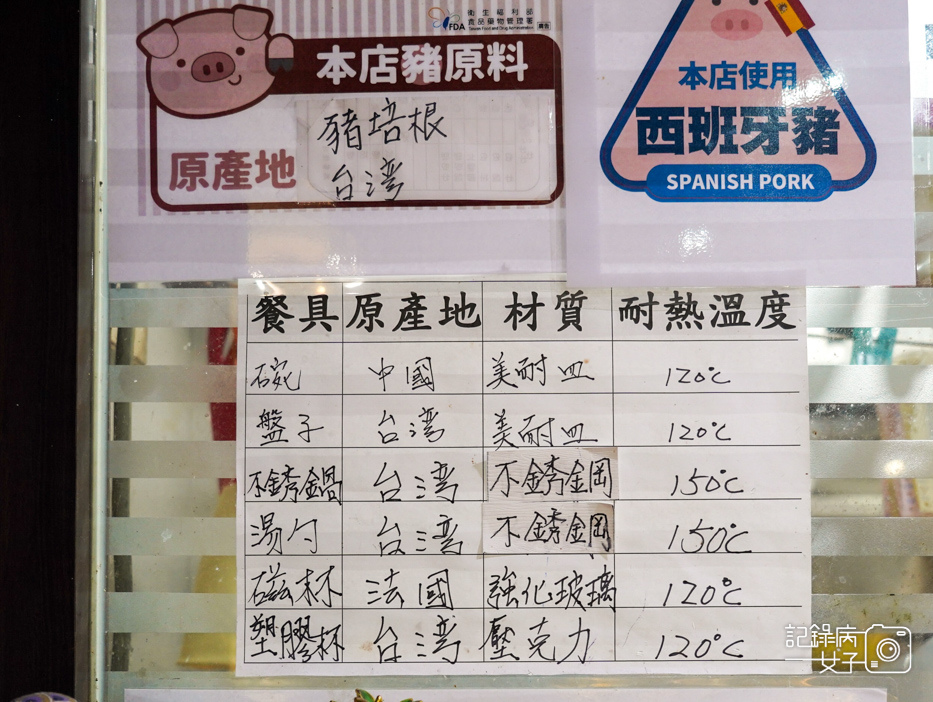 衛生福利部
食品藥物管理署
FDA Taiwan Food and Drug Administration 廣告
本店豬原料
豬培根
原產地 台湾
本店使用
西班牙豬
SPANISH PORK
餐具 原產地 材質 耐熱溫度
碗 中國 美耐皿 120°C
盤子 台湾 美耐皿 120°C
不銹鍋 台湾 不銹鋼 150°C
湯勺 台湾 不銹鋼 150°C
磁杯 法國 強化玻璃 120°C
塑膠杯 台湾 壓克力 120°C
記錄病
女子